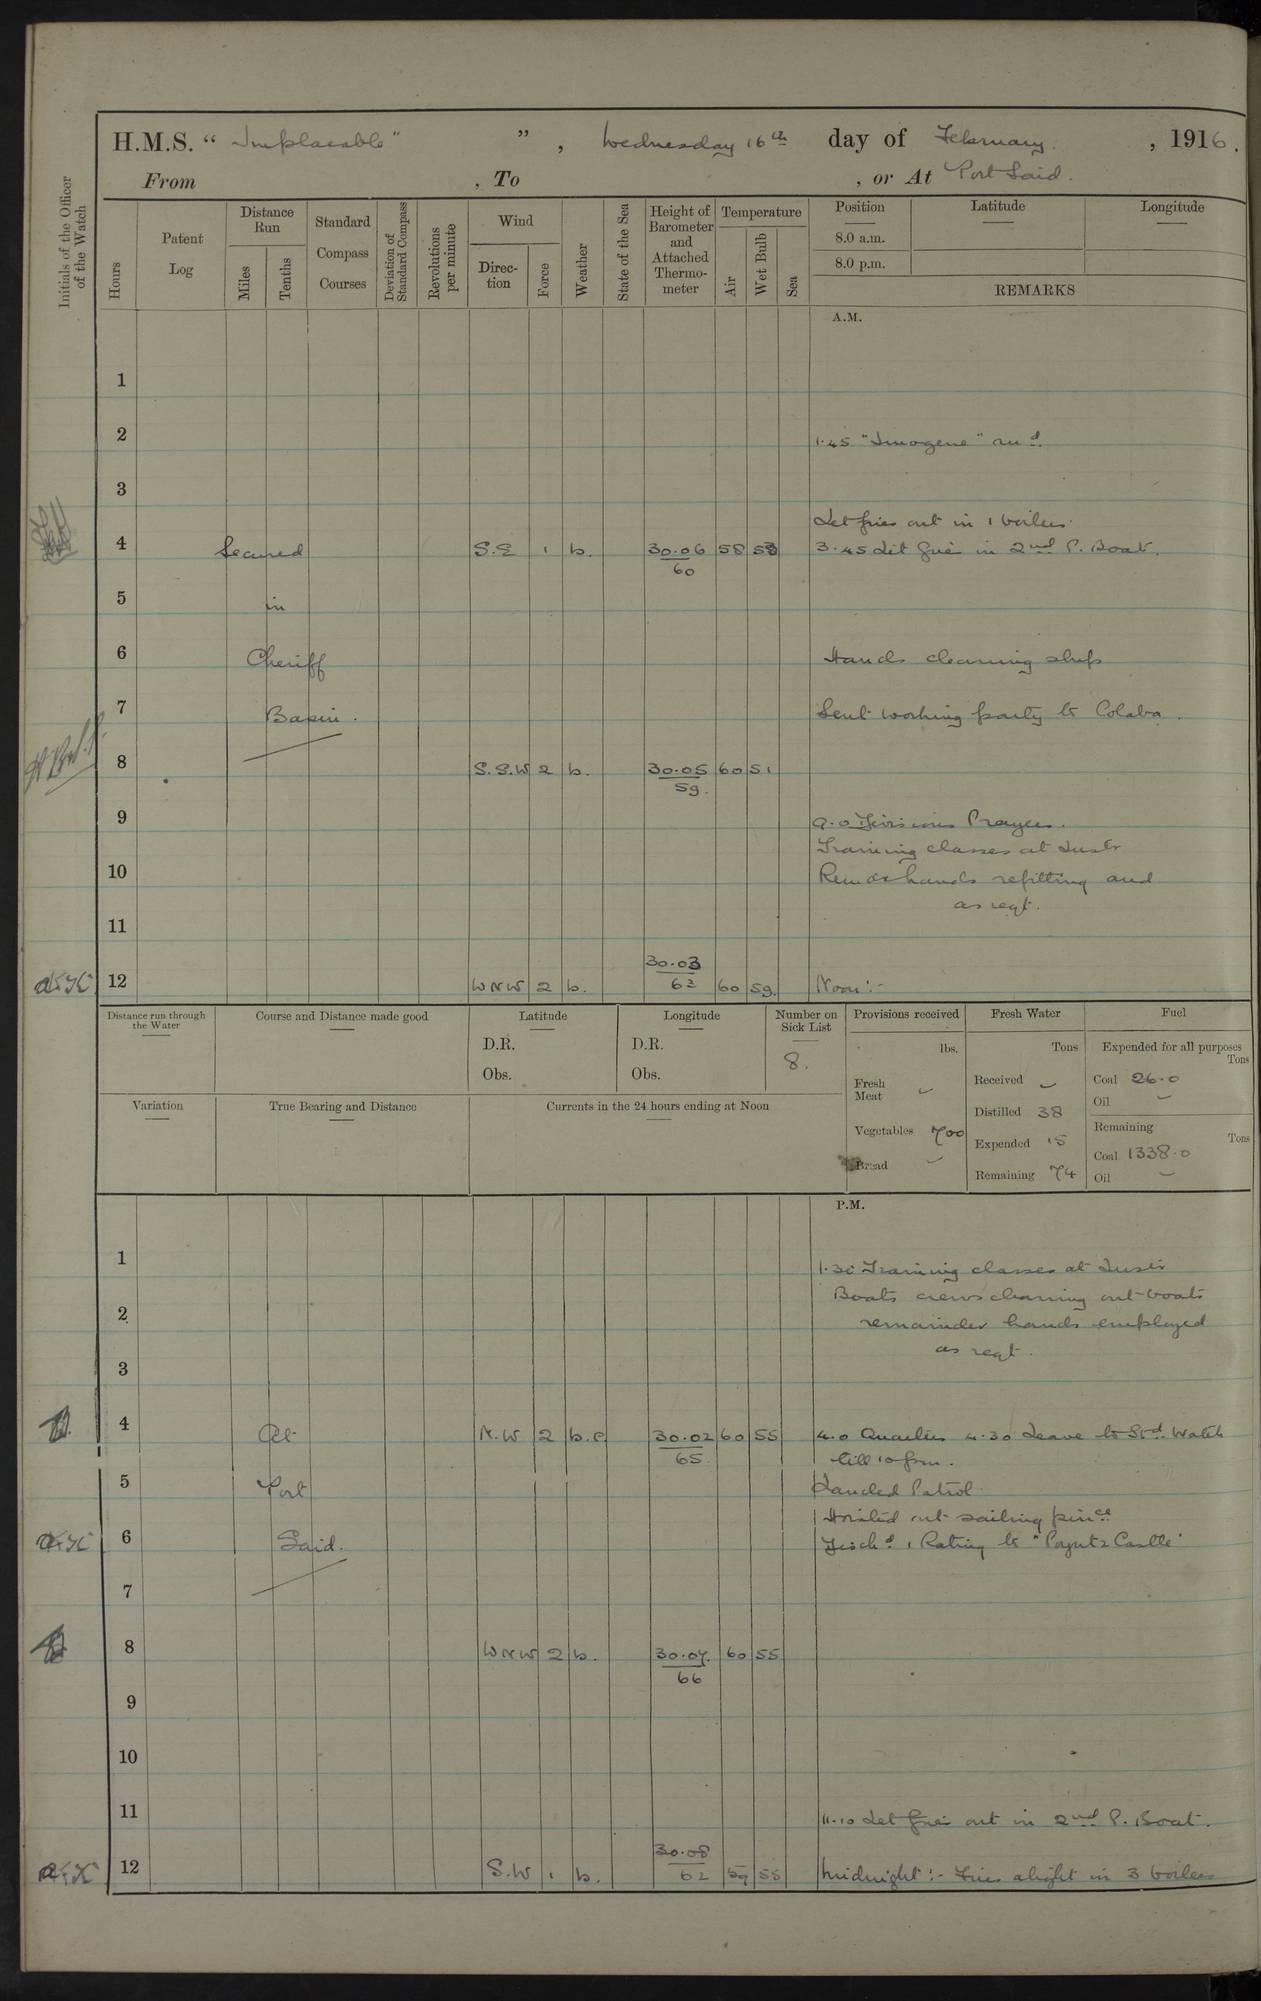 H.M.S. "Implacable", Wednesday 16th day of February, 1916.
From , To , or At Port Said.
Initials of the Officer of the Watch
Hours
Patent Log
Distance Run
Miles
Tenths
Standard Compass Courses
Deviation of Standard Compass
Revolutions per minute
Wind
Direction
Force
Weather
State of the Sea
Height of Barometer and Attached Thermometer
Temperature
Air
Wet Bulb
Sea
Position
Latitude
Longitude
8.0 a.m.
8.0 p.m.
REMARKS
A.M.
1
2 1.45 "Imogene" arrd.
3
Let fires out in 1 boiler.
4 Secured S.E 1 b. 30.06 58 53 3.45 Lit fires in 2nd P. Boat.
60
5 in
6 Cheriff Hands cleaning ship
7 Basin. Sent working party to Colaba.
8 S.S.W 2 b. 30.05 60 51
59.
9 9.0 Divisions Prayers.
Training classes at Instr
10 Remdr hands refitting and
as reqt.
11
30.03
12 WNW 2 b. 62 60 59. Noon:-
Distance run through the Water
Course and Distance made good
Latitude
D.R.
Obs.
Longitude
D.R.
Obs.
Number on Sick List
8.
Provisions received
lbs.
Fresh Meat –
Vegetables 700
Bread –
Fresh Water
Tons
Received –
Distilled 38
Expended 15
Remaining 74
Fuel
Expended for all purposes
Tons
Coal 26.0
Oil –
Remaining
Tons
Coal 1338.0
Oil –
Variation
True Bearing and Distance
Currents in the 24 hours ending at Noon
P.M.
1 1.30 Training classes at Instr
Boats crews cleaning out boats
2 remainder hands employed
as reqt.
3
4 At N.W 2 b.c. 30.02 60 55 4.0 Quarters 4.30 Leave to Stbd Watch
65 till 10 pm.
5 Port Landed Patrol.
Hoisted out sailing pince
6 Said. Dischd 1 Rating to "Poyntz Castle"
7
8 WNW 2 b. 30.07. 60 55
66
9
10
11 11.10 Let fires out in 2nd P. Boat.
30.08
12 S.W 1 b. 62 59 55 Midnight:- Fires alight in 3 boilers